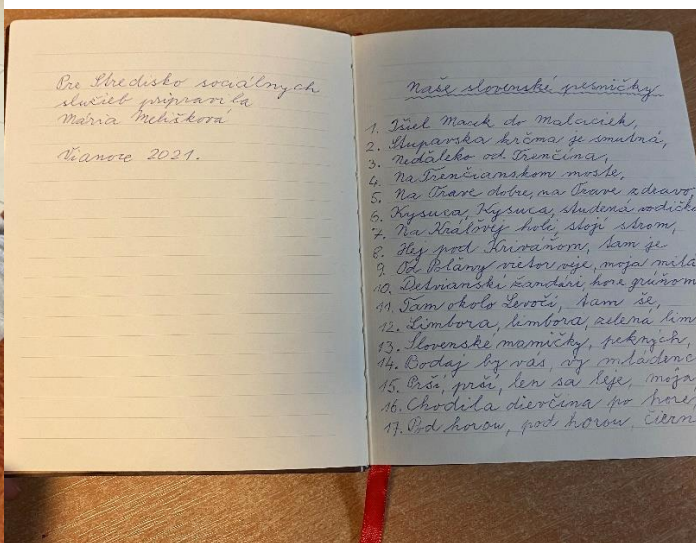 Pre Stredisko sociálnych
služieb pripravila
Mária Melišková
Vianoce 2021.
Naše slovenské pesničky
1. Išiel Macek do Malaciek,
2. Stupavska krčma je smutná,
3. Neďaleko od Trenčína,
4. Na Trenčianskom moste,
5. Na Orave dobre, na Orave zdravo
6. Kysuca, Kysuca, studená vodičk
7. Na Kráľovej holi, stojí strom,
8. Hej pod Kriváňom, tam je
9. Od Poľany vietor veje, moja milá
10. Detvianski žandári, hore grúňom
11. Tam okolo Levoči, tam se,
12. Limbora, limbora, zelená lim
13. Slovenské mamičky, pekných,
14. Bodaj by vás, vy mládenc
15. Prší, prší, len sa leje, moja
16. Chodila dievčina po hore,
17. Pod horou, pod horou, čiern